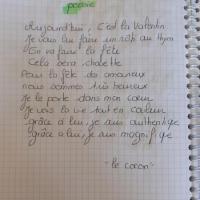 poésie
Aujourd'hui, c'est la Valentin
Je vais lui faire un rôti au thym
On va faire la fête
Cela sera chouette
Pour la fête des amoureux
nous sommes très heureux
Je le porte dans mon cœur
Je vois la vie tout en couleur
grâce à lui, je suis authentique
grâce à lui, je suis magnifique
"le cocon"